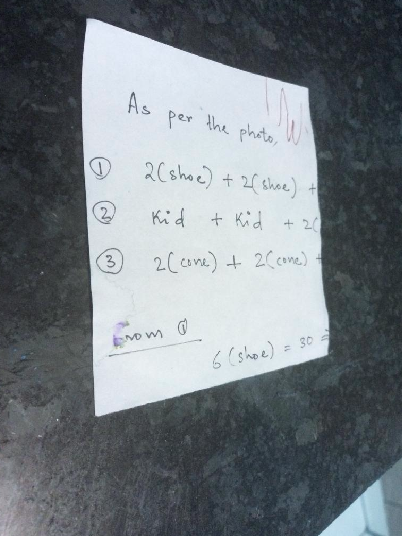 As per the photo,
① 2(shoe) + 2(shoe) +
② Kid + Kid + 2(
③ 2(cone) + 2(cone) +
From ①
6(shoe) = 30 =